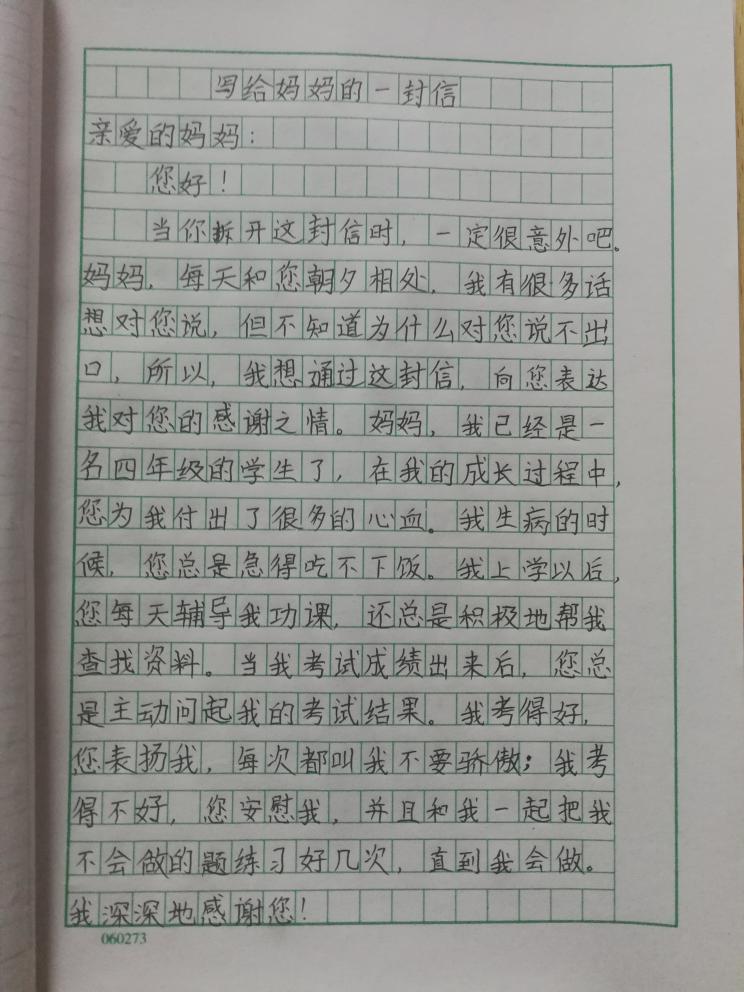 写给妈妈的一封信
亲爱的妈妈:
您好!
当你拆开这封信时,一定很意外吧。
妈妈,每天和您朝夕相处,我有很多话
想对您说,但不知道为什么对您说不出
口,所以,我想通过这封信,向您表达
我对您的感谢之情。妈妈,我已经是一
名四年级的学生了,在我的成长过程中,
您为我付出了很多的心血。我生病的时
候,您总是急得吃不下饭。我上学以后,
您每天辅导我功课,还总是积极地帮我
查找资料。当我考试成绩出来后,您总
是主动问起我的考试结果。我考得好,
您表扬我,每次都叫我不要骄傲;我考
得不好,您安慰我,并且和我一起把我
不会做的题练习好几次,直到我会做。
我深深地感谢您!
060273